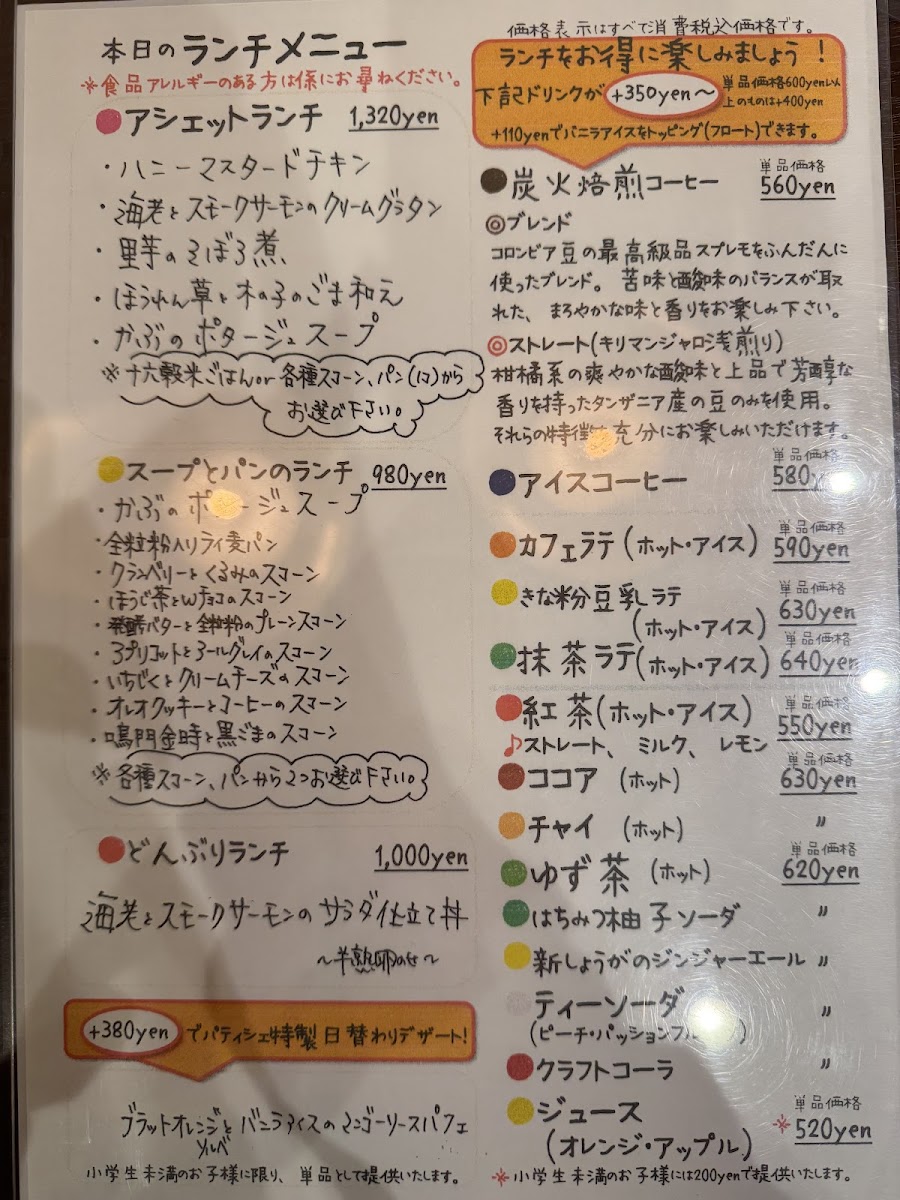 本日のランチメニュー
※食品アレルギーのある方は係にお尋ねください。
●アシェットランチ 1,320yen
・ハニーマスタードチキン
・海老とスモークサーモンのクリームグラタン
・里芋のそぼろ煮
・ほうれん草と木の子のごま和え
・かぶのポタージュスープ
※十六穀米ごはんor各種スコーン、パン(1コ)から
お選び下さい。
●スープとパンのランチ 980yen
・かぶのポタージュスープ
・全粒粉入りライ麦パン
・クランベリーとくるみのスコーン
・ほうじ茶とWチョコのスコーン
・発酵バターと全粒粉のプレーンスコーン
・アプリコットとアールグレイのスコーン
・いちじくとクリームチーズのスコーン
・オレオクッキーとコーヒーのスコーン
・鳴門金時と黒ごまのスコーン
※各種スコーン、パンから2つお選び下さい。
●どんぶりランチ 1,000yen
海老とスモークサーモンのサラダ仕立て丼
〜半熟卵のせ〜
+380yenでパティシェ特製日替わりデザート!
ブラットオレンジとバニラアイスのマンゴーソースパフェ
ソルベ
小学生未満のお子様に限り、単品として提供いたします。
価格表示はすべて消費税込価格です。
ランチをお得に楽しみましょう!
下記ドリンクが +350yen〜 単品価格600yen以
上のものは+400yen
+110yenでバニラアイスをトッピング(フロート)できます。
●炭火焙煎コーヒー 単品価格 560yen
◎ブレンド
コロンビア豆の最高級品スプレモをふんだんに
使ったブレンド。苦味と酸味のバランスが取
れた、まろやかな味と香りをお楽しみ下さい。
◎ストレート(キリマンジャロ浅煎り)
柑橘系の爽やかな酸味と上品で芳醇な
香りを持ったタンザニア産の豆のみを使用。
それらの特徴を充分にお楽しみいただけます。
●アイスコーヒー 単品価格 580y
●カフェラテ(ホット・アイス) 単品価格 590yen
●きな粉豆乳ラテ
(ホット・アイス) 単品価格 630yen
●抹茶ラテ(ホット・アイス) 単品価格 640yen
●紅茶(ホット・アイス) 単品価格 550yen
♪ストレート、ミルク、レモン
●ココア(ホット) 単品価格 630yen
●チャイ(ホット) 〃
●ゆず茶(ホット) 単品価格 620yen
●はちみつ柚子ソーダ 〃
●新しょうがのジンジャーエール 〃
ティーソーダ 〃
(ピーチ・パッションフル)
●クラフトコーラ 〃
●ジュース 単品価格
(オレンジ・アップル) ※520yen
※小学生未満のお子様には200yenで提供いたします。